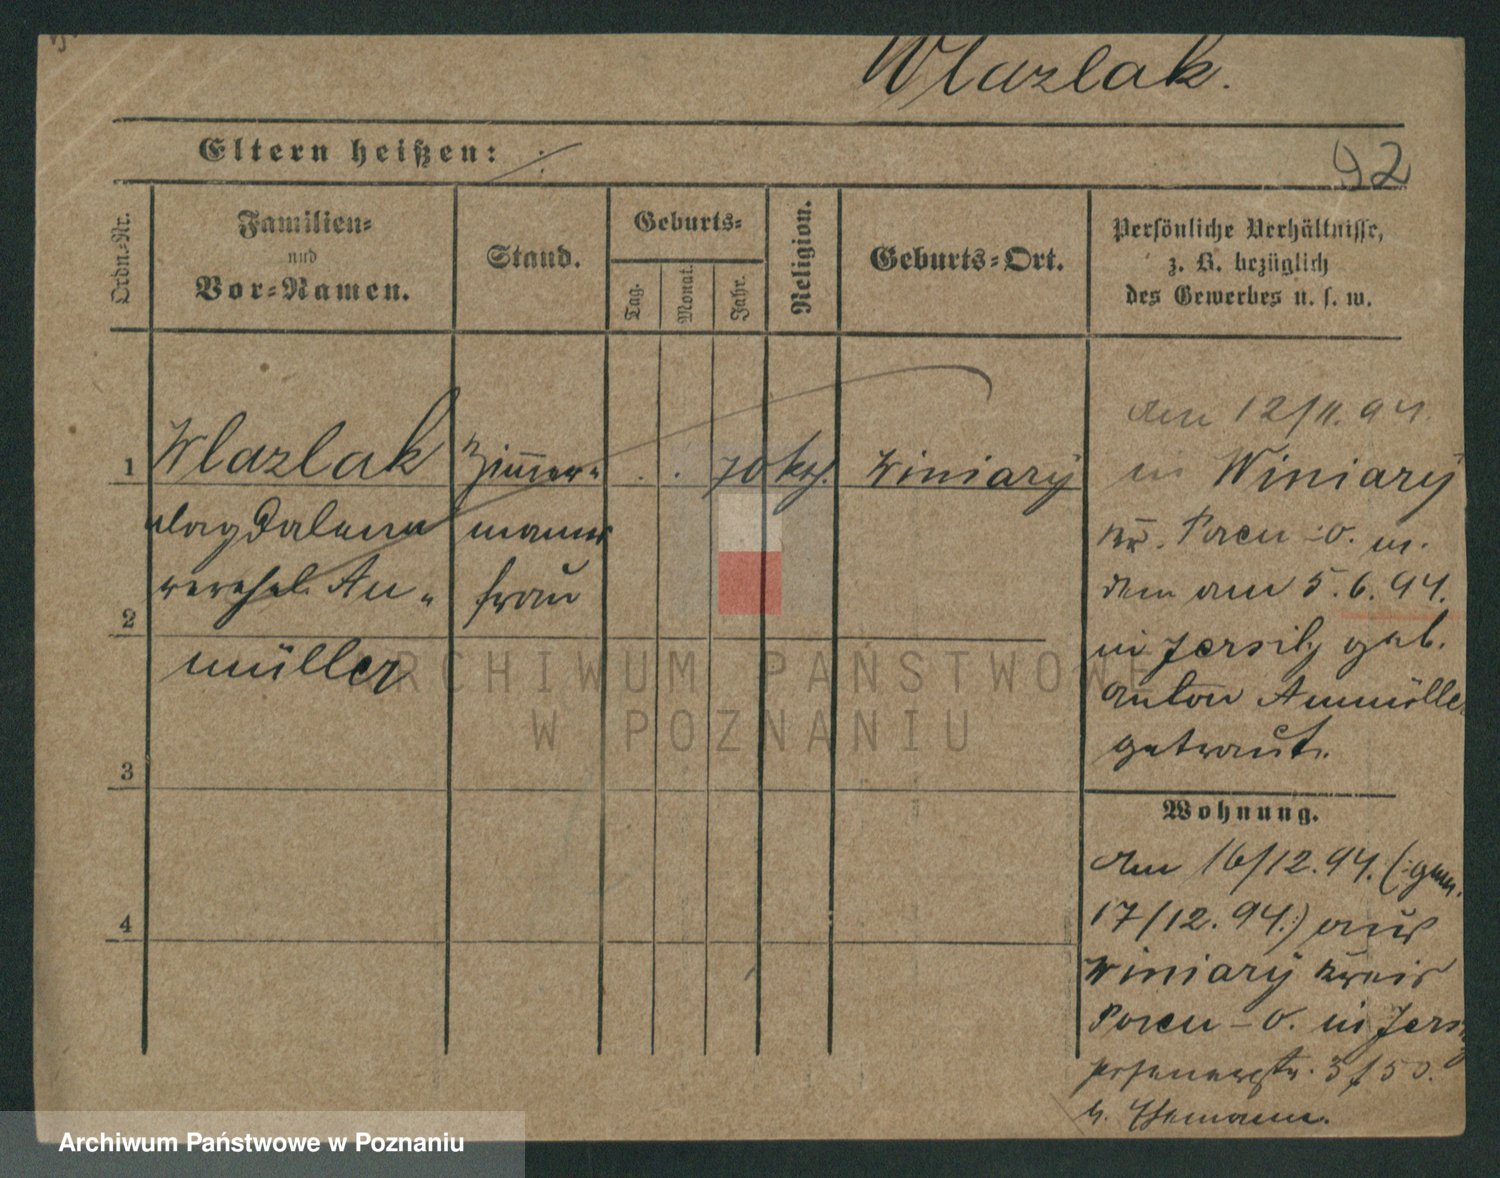 Wlazlak.
Eltern heißen: ./.
92
Ordn.-Nr.
Familien-
und
Vor-Namen.
Stand.
Geburts-
Tag.
Monat.
Jahr.
Religion.
Geburts-Ort.
Persönliche Verhältnisse,
z. B. bezüglich
des Gewerbes u. s. w.
1 Wlazlak Zimmer- . . 70 kth. Winiary
Magdalena manns
2 verehel. An- frau
müller
3
4
am 12/11. 94.
in Winiary
Kr. Posen-O. m.
dem am 5.6.94.
in Jersitz geb.
Anton Anmüller
getraut.
Wohnung.
Am 16/12.94. (:gem.
17/12.94.:) aus
Winiary Kreis
Posen-O. in Jers
Posenerstr. 3/50.
b.
ARCHIWUM PAŃSTWOWE
W POZNANIU
Archiwum Państwowe w Poznaniu